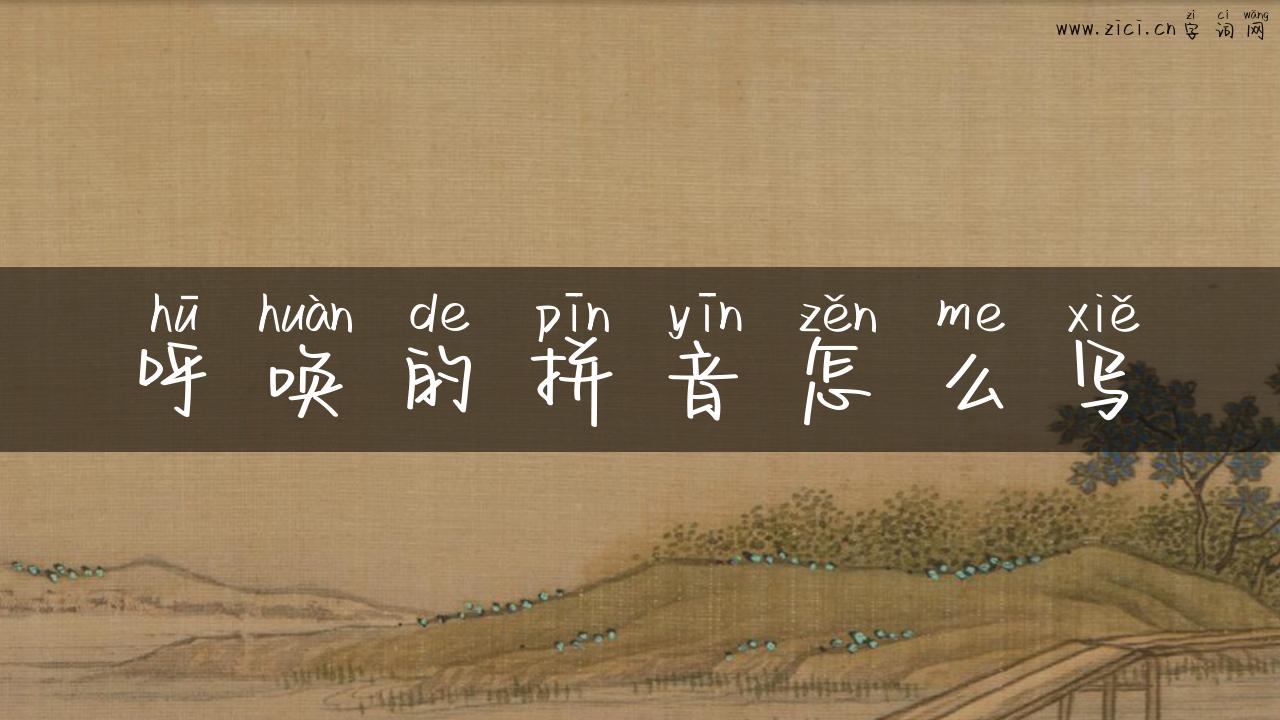 zì cí wǎng
www.zici.cn 字词网
hū huàn de pīn yīn zěn me xiě
呼唤的拼音怎么写